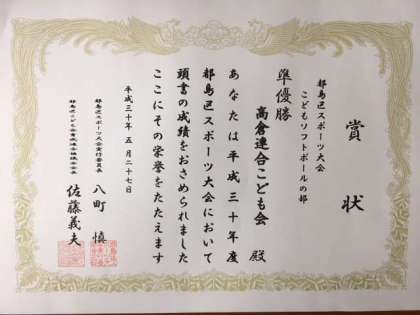 賞状
都島区スポーツ大会
こどもソフトボールの部
準優勝
高倉連合こども会 殿
あなたは平成三十年度
都島区スポーツ大会において
頭書の成績をおさめられました
ここにその栄誉をたたえます
平成三十年 五月二十七日
都島区スポーツ大会実行委員長
八町 慎
佐藤義夫